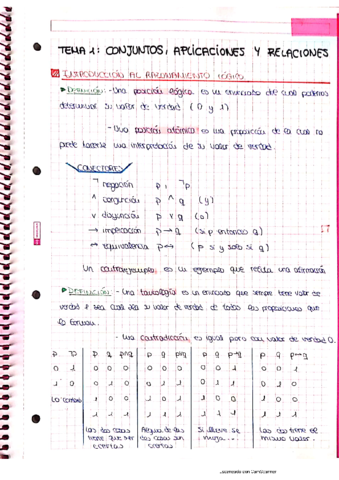 TEMA 1: CONJUNTOS, APLICACIONES Y RELACIONES
INTRODUCCIÓN AL RAZONAMIENTO LÓGICO
DEFINICIÓN: - Una posición lógica es un enunciado del cual podemos
determinar su valor de verdad (0 y 1)
- Una posición atómica es una proposición de la cual no
puede hacerse una interpretación de su valor de verdad.
CONECTORES
¬ negación p, ¬p
^ conjunción p ^ q (y)
v disyunción p v q (o)
→ implicación p → q (si p entonces q)
↔ equivalencia p ↔ (p si y solo si q)
Un contraejemplo es un ejemplo que refuta una afirmación
DEFINICIÓN: - Una tautología es un enunciado que siempre tiene valor de
verdad 1 sea cual sea su valor de verdad de todas las proposiciones que
lo forman.
- Una contradicción es igual pero con valor de verdad 0.
p ¬p p q p^q p q pvq p q p→q p q p↔q
0 1 0 0 0 0 0 0 0 0 1 0 0 1
1 0 0 1 0 0 1 1 0 1 1 0 1 0
Lo contrario 1 0 0 1 0 1 1 0 0 1 0 0
1 1 1 1 1 1 1 1 1 1 1 1
Las dos cosas tiene que ser ciertas
Alguna de las cosas son ciertas
Si llueve se moja...
Las dos tiene el mismo valor.